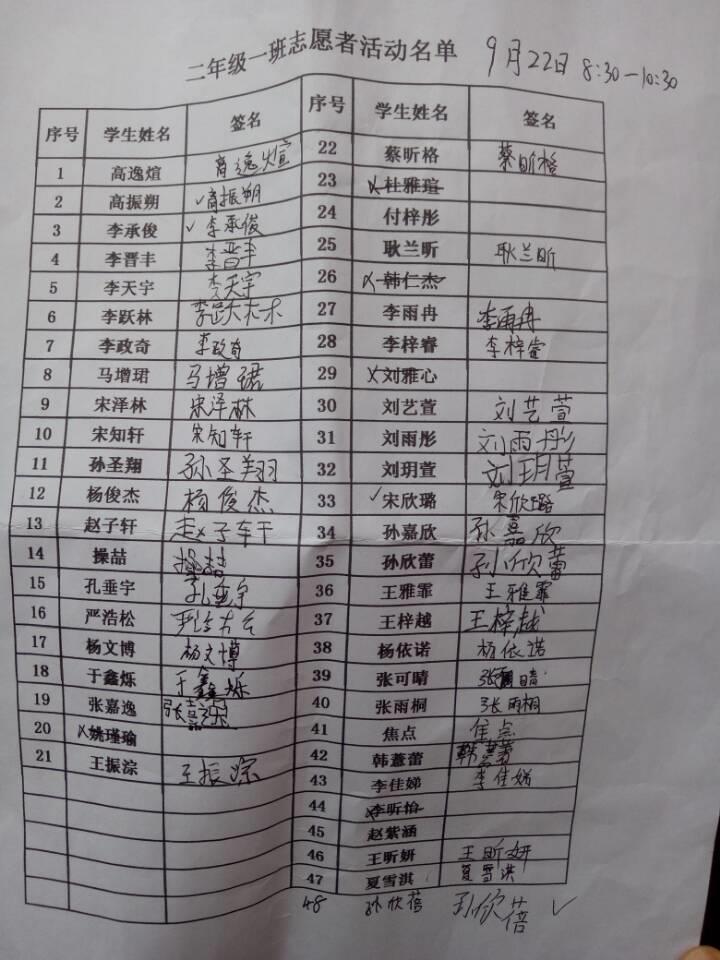 二年级一班志愿者活动名单 9月22日 8:30-10:30
序号 学生姓名 签名 序号 学生姓名 签名
1 高逸煊 高逸煊 22 蔡昕格 蔡昕格
2 高振朔 ✓高振朔 23 ×杜雅瑄
3 李承俊 ✓李承俊 24 付梓彤
4 李晋丰 李晋丰 25 耿兰昕 耿兰昕
5 李天宇 李天宇 26 ×韩仁杰
6 李跃林 李跃林 27 李雨冉 李雨冉
7 李政奇 李政奇 28 李梓睿 李梓睿
8 马增珺 马增珺 29 ×刘雅心
9 宋泽林 宋泽林 30 刘艺萱 刘艺萱
10 宋知轩 宋知轩 31 刘雨彤 刘雨彤
11 孙圣翔 孙圣翔 32 刘玥萱 刘玥萱
12 杨俊杰 杨俊杰 33 ✓宋欣璐 宋欣璐
13 赵子轩 赵子轩 34 孙嘉欣 孙嘉欣
14 操喆 操喆 35 孙欣蕾 孙欣蕾
15 孔垂宇 孔垂宇 36 王雅霏 王雅霏
16 严浩松 37 王梓越 王梓越
17 杨文博 杨文博 38 杨依诺 杨依诺
18 于鑫烁 于鑫烁 39 张可晴
19 张嘉逸 40 张雨桐 张雨桐
20 ×姚瑾瑜 41 焦点 焦点
21 王振淙 王振淙 42 韩薏蕾
43 李佳娣 李佳娣
44 ×李昕怡
45 赵紫涵
46 王昕妍 王昕妍
47 夏雪淇 夏雪淇
48 孙欣蓓 孙欣蓓 ✓